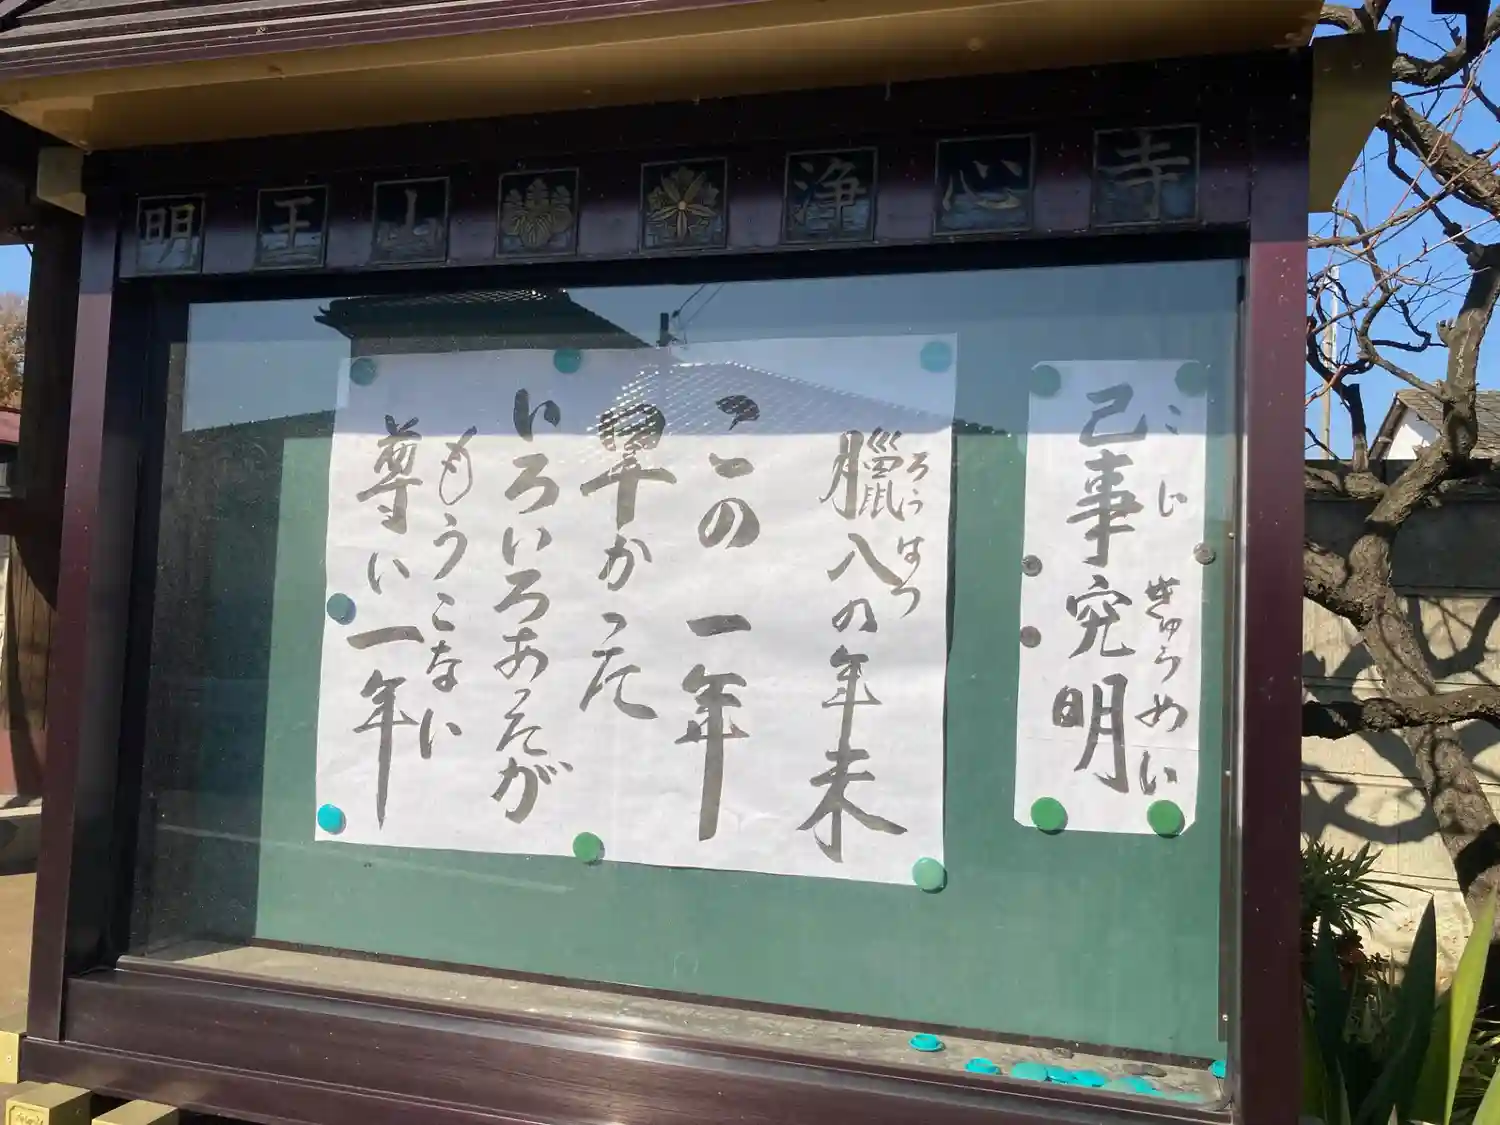 明王山 浄心寺
己事究明
こじ きゅうめい
臘八の年末
ろうはつ
この一年
早かった
いろいろあったが
もうこない
尊い一年